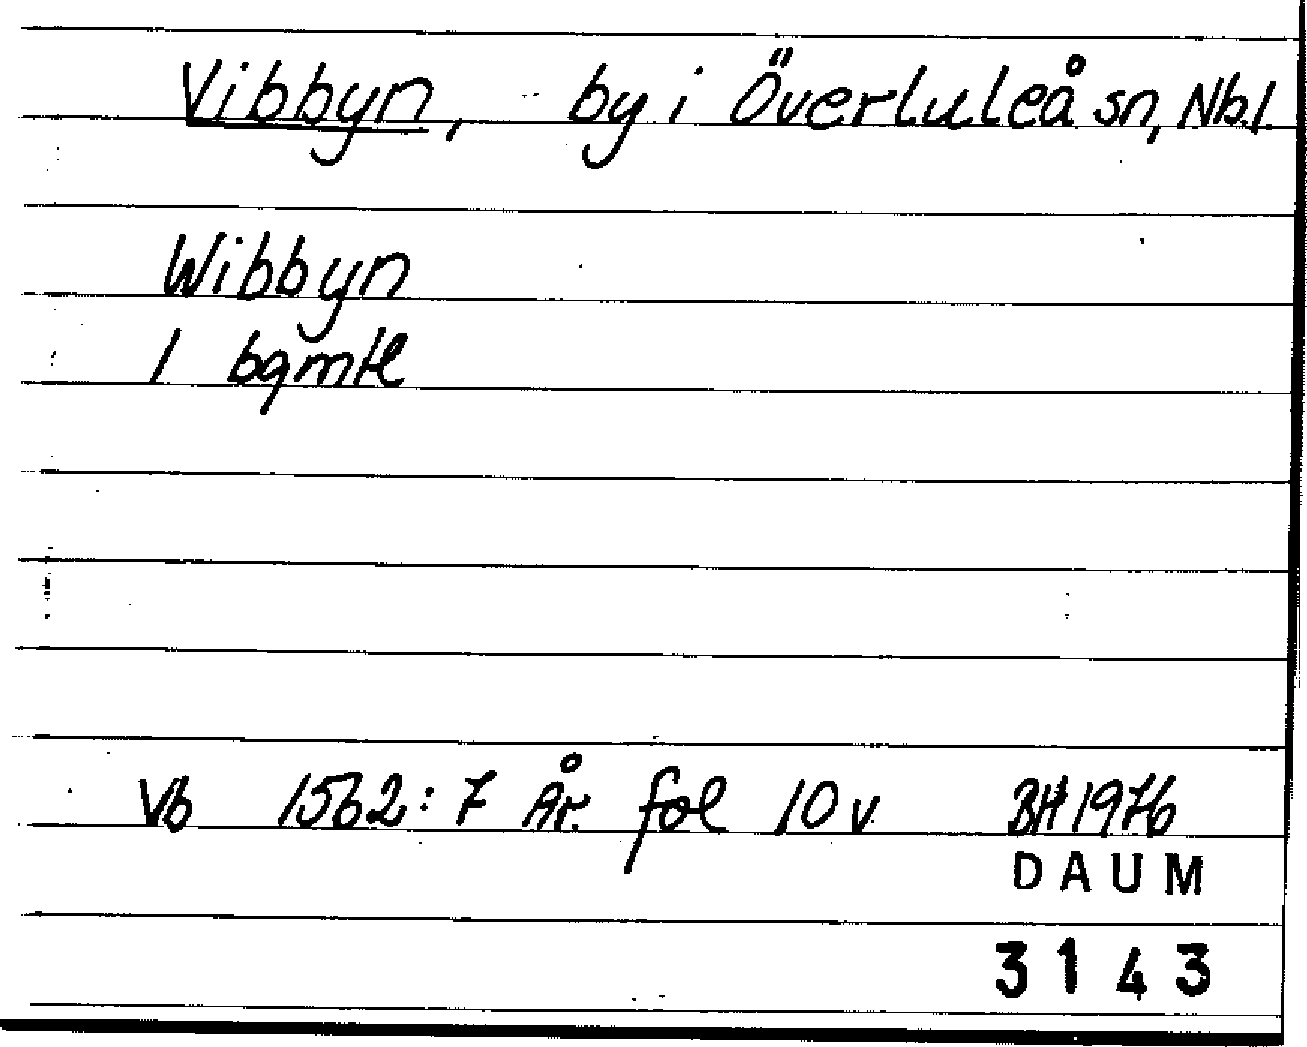 Vibbyn, - by i Överluleå sn, Nb.l.
Wibbyn
1 bgmtl
Vb 1562:7 Är. fol 10 v BH 1976
DAUM
3143